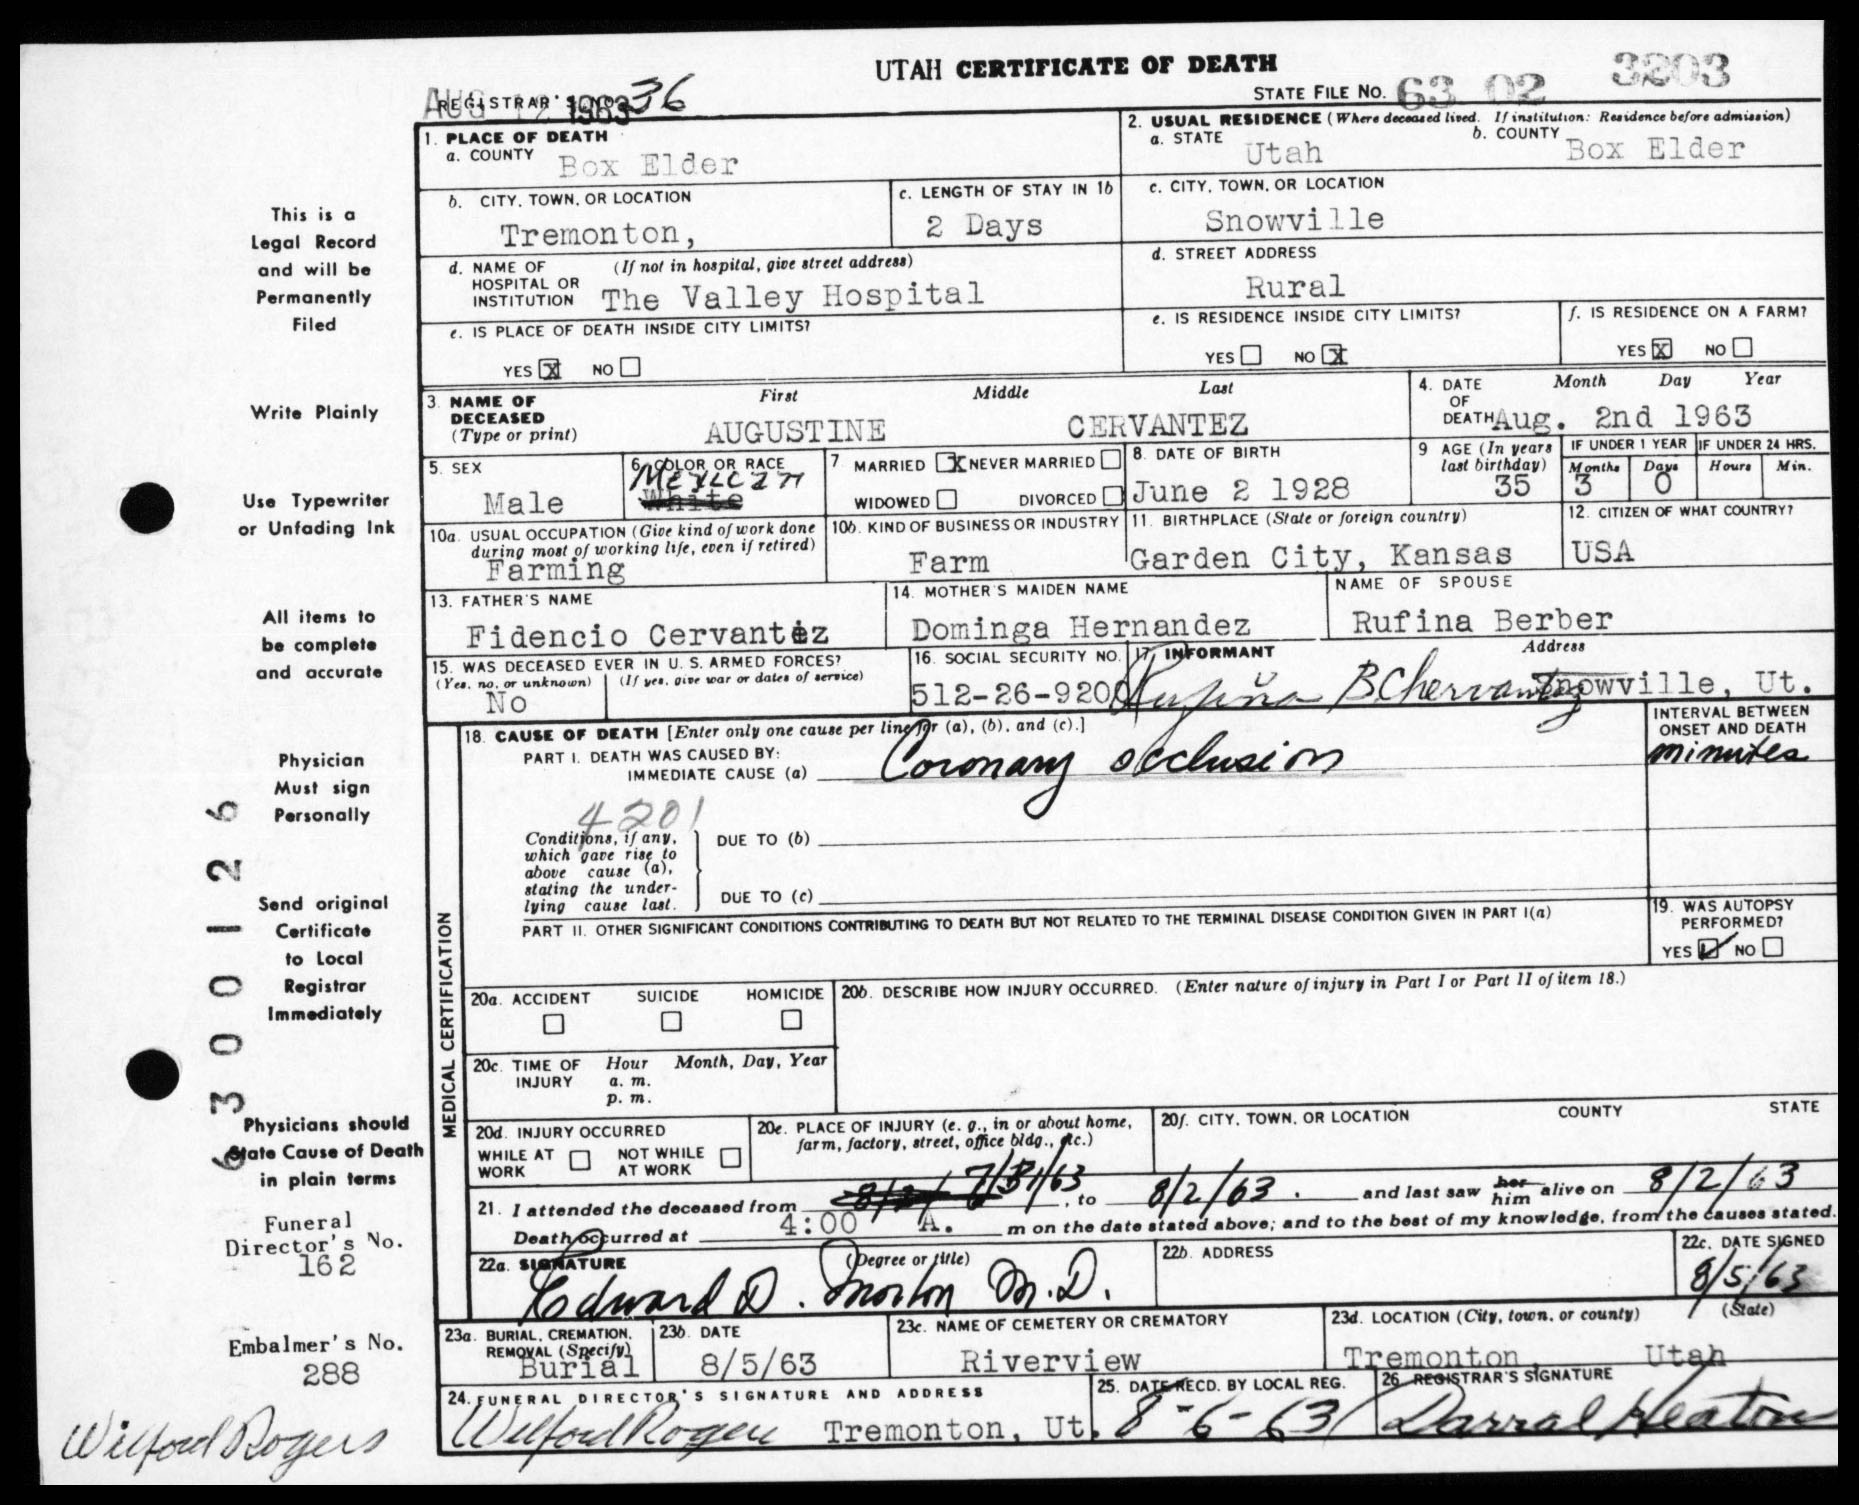 UTAH CERTIFICATE OF DEATH
REGISTRAR'S NO. 36
AUG 12 1963
STATE FILE NO. 63 02 3203
1. PLACE OF DEATH
a. COUNTY Box Elder
2. USUAL RESIDENCE (Where deceased lived. If institution: Residence before admission)
a. STATE Utah b. COUNTY Box Elder
b. CITY, TOWN, OR LOCATION Tremonton,
c. LENGTH OF STAY IN 1b 2 Days
c. CITY, TOWN, OR LOCATION Snowville
d. NAME OF HOSPITAL OR INSTITUTION (If not in hospital, give street address) The Valley Hospital
d. STREET ADDRESS Rural
e. IS PLACE OF DEATH INSIDE CITY LIMITS?
YES X NO
e. IS RESIDENCE INSIDE CITY LIMITS?
YES NO X
f. IS RESIDENCE ON A FARM?
YES X NO
3. NAME OF DECEASED (Type or print)
First Middle Last
AUGUSTINE CERVANTEZ
4. DATE OF DEATH Month Day Year
Aug. 2nd 1963
5. SEX Male
6. COLOR OR RACE Mexican White
7. MARRIED X NEVER MARRIED
WIDOWED DIVORCED
8. DATE OF BIRTH June 2 1928
9 AGE (In years last birthday) 35
IF UNDER 1 YEAR Months 3 Days 0
IF UNDER 24 HRS. Hours Min.
10a. USUAL OCCUPATION (Give kind of work done during most of working life, even if retired)
Farming
10b. KIND OF BUSINESS OR INDUSTRY Farm
11. BIRTHPLACE (State or foreign country) Garden City, Kansas
12. CITIZEN OF WHAT COUNTRY? USA
13. FATHER'S NAME Fidencio Cervantez
14. MOTHER'S MAIDEN NAME Dominga Hernandez
NAME OF SPOUSE Rufina Berber
15. WAS DECEASED EVER IN U. S. ARMED FORCES?
(Yes, no, or unknown) (If yes, give war or dates of service)
No
16. SOCIAL SECURITY NO. 512-26-9200
17. INFORMANT Address
Rufina B Chervantez Snowville, Ut.
MEDICAL CERTIFICATION
18. CAUSE OF DEATH [Enter only one cause per line for (a), (b), and (c).]
PART I. DEATH WAS CAUSED BY:
IMMEDIATE CAUSE (a) Coronary occlusion
INTERVAL BETWEEN ONSET AND DEATH
minutes
4201
Conditions, if any, which gave rise to above cause (a), stating the underlying cause last.
DUE TO (b)
DUE TO (c)
PART II. OTHER SIGNIFICANT CONDITIONS CONTRIBUTING TO DEATH BUT NOT RELATED TO THE TERMINAL DISEASE CONDITION GIVEN IN PART I(a)
19. WAS AUTOPSY PERFORMED?
YES NO
20a. ACCIDENT SUICIDE HOMICIDE
20b. DESCRIBE HOW INJURY OCCURRED. (Enter nature of injury in Part I or Part II of item 18.)
20c. TIME OF INJURY Hour Month, Day, Year
a. m.
p. m.
20d. INJURY OCCURRED
WHILE AT WORK NOT WHILE AT WORK
20e. PLACE OF INJURY (e. g., in or about home, farm, factory, street, office bldg., etc.)
20f. CITY, TOWN, OR LOCATION COUNTY STATE
21. I attended the deceased from 7/31/63, to 8/2/63. and last saw her him alive on 8/2/63
Death occurred at 4:00 A. m on the date stated above; and to the best of my knowledge, from the causes stated.
22a. SIGNATURE (Degree or title)
Edward D. Morton M.D.
22b. ADDRESS
22c. DATE SIGNED
8/5/63
23a. BURIAL, CREMATION, REMOVAL (Specify) Burial
23b. DATE 8/5/63
23c. NAME OF CEMETERY OR CREMATORY Riverview
23d. LOCATION (City, town, or county) (State)
Tremonton, Utah
24. FUNERAL DIRECTOR'S SIGNATURE AND ADDRESS
Wilford Rogers Tremonton, Ut.
25. DATE RECD. BY LOCAL REG. 8-6-63
26 REGISTRAR'S SIGNATURE
Darral Heaton
This is a
Legal Record
and will be
Permanently
Filed
Write Plainly
Use Typewriter
or Unfading Ink
All items to
be complete
and accurate
Physician
Must sign
Personally
Send original
Certificate
to Local
Registrar
Immediately
Physicians should
State Cause of Death
in plain terms
6300126
Funeral
Director's No.
162
Embalmer's No.
288
Wilford Rogers